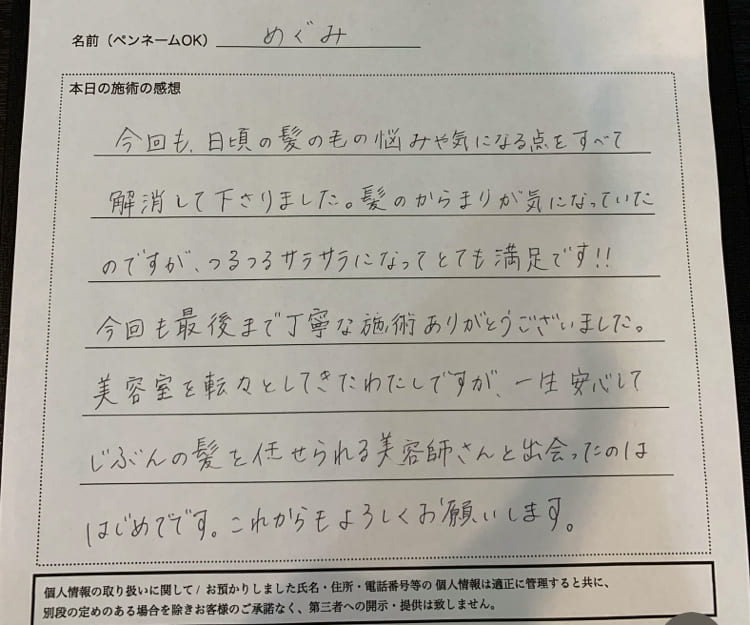 名前（ペンネームOK） めぐみ
本日の施術の感想
今回も、日頃の髪の毛の悩みや気になる点をすべて
解消して下さりました。髪のからまりが気になっていた
のですが、つるつるサラサラになってとても満足です!!
今回も最後まで丁寧な施術ありがとうございました。
美容室を転々としてきたわたしですが、一生安心して
じぶんの髪を任せられる美容師さんと出会ったのは
はじめてです。これからもよろしくお願いします。
個人情報の取り扱いに関して/ お預かりしました氏名・住所・電話番号等の 個人情報は適正に管理すると共に、
別段の定めのある場合を除きお客様のご承諾なく、第三者への開示・提供は致しません。